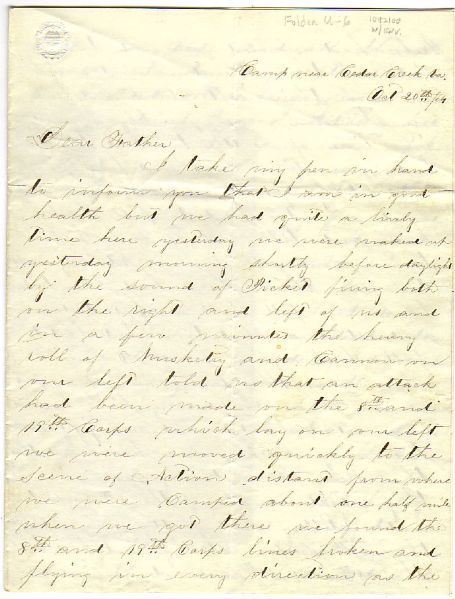 Folder U-6
Camp near Cedar Creek Va.
Oct 20th/64
Dear Father
I take my pen in hand
to inform you that I am in good
health but we had quite a lively
time here yesterday we were waked up
yesterday morning shortly before daylight
by the sound of Picket firing both
on the right and left of us and
in a few minutes the heavy
roll of Muskety and Cannon on
our left told us that an attack
had been made on the 8th and
19th Corps which lay on our left
we were mooved quickly to the
scene of Action distant from where
we were Camped about one half mile
when we got there we found the
8th and 19th Corps lines broken and
flying in every direction as the